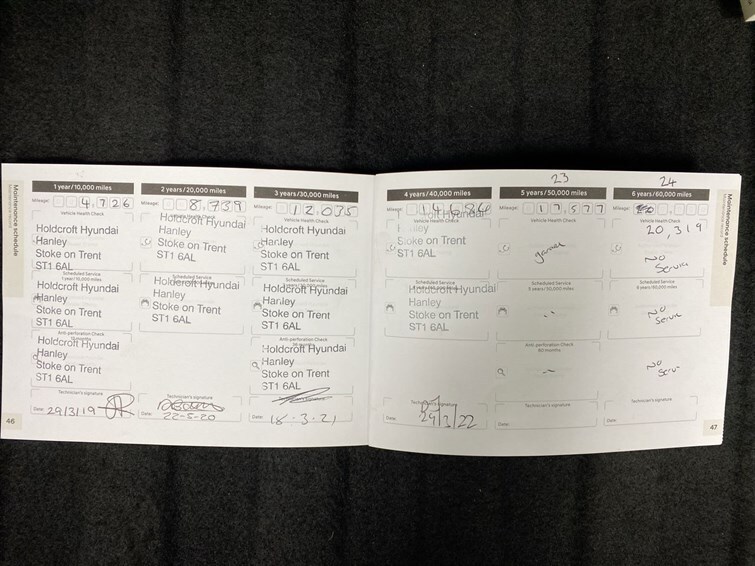 Maintenance schedule
Maintenance record
46
1 year/10,000 miles
Mileage: 4,726
Vehicle Health Check
Holdcroft Hyundai
Hanley
Stoke on Trent
ST1 6AL
Scheduled Service
1 year/10,000 miles
Holdcroft Hyundai
Hanley
Stoke on Trent
ST1 6AL
Anti-perforation Check
Holdcroft Hyundai
Hanley
Stoke on Trent
ST1 6AL
Technician's signature
Date: 29/3/19
2 years/20,000 miles
Mileage: 8,739
Vehicle Health Check
Holdcroft Hyundai
Hanley
Stoke on Trent
ST1 6AL
Scheduled Service
Holdcroft Hyundai
Hanley
Stoke on Trent
ST1 6AL
Technician's signature
Date: 22-5-20
3 years/30,000 miles
Mileage: 12,035
Vehicle Health Check
Holdcroft Hyundai
Hanley
Stoke on Trent
ST1 6AL
Scheduled Service
Holdcroft Hyundai
Hanley
Stoke on Trent
ST1 6AL
Anti-perforation Check
Holdcroft Hyundai
Hanley
Stoke on Trent
ST1 6AL
Technician's signature
Date: 18.3.21
4 years/40,000 miles
Mileage: 14686
Vehicle Health Check
Hyundai
Stoke on Trent
ST1 6AL
Scheduled Service
Holdcroft Hyundai
Hanley
Stoke on Trent
ST1 6AL
Technician's signature
Date: 29/3/22
23
5 years/50,000 miles
Mileage: 17,577
Vehicle Health Check
Scheduled Service
5 years/50,000 miles
Anti-perforation Check
60 months
Technician's signature
Date:
24
6 years/60,000 miles
Mileage:
Vehicle Health Check
20,319
NO
Service
Scheduled Service
6 years/60,000 miles
NO
Serv
NO
Serv
Technician's signature
Date:
Maintenance schedule
Maintenance record
47